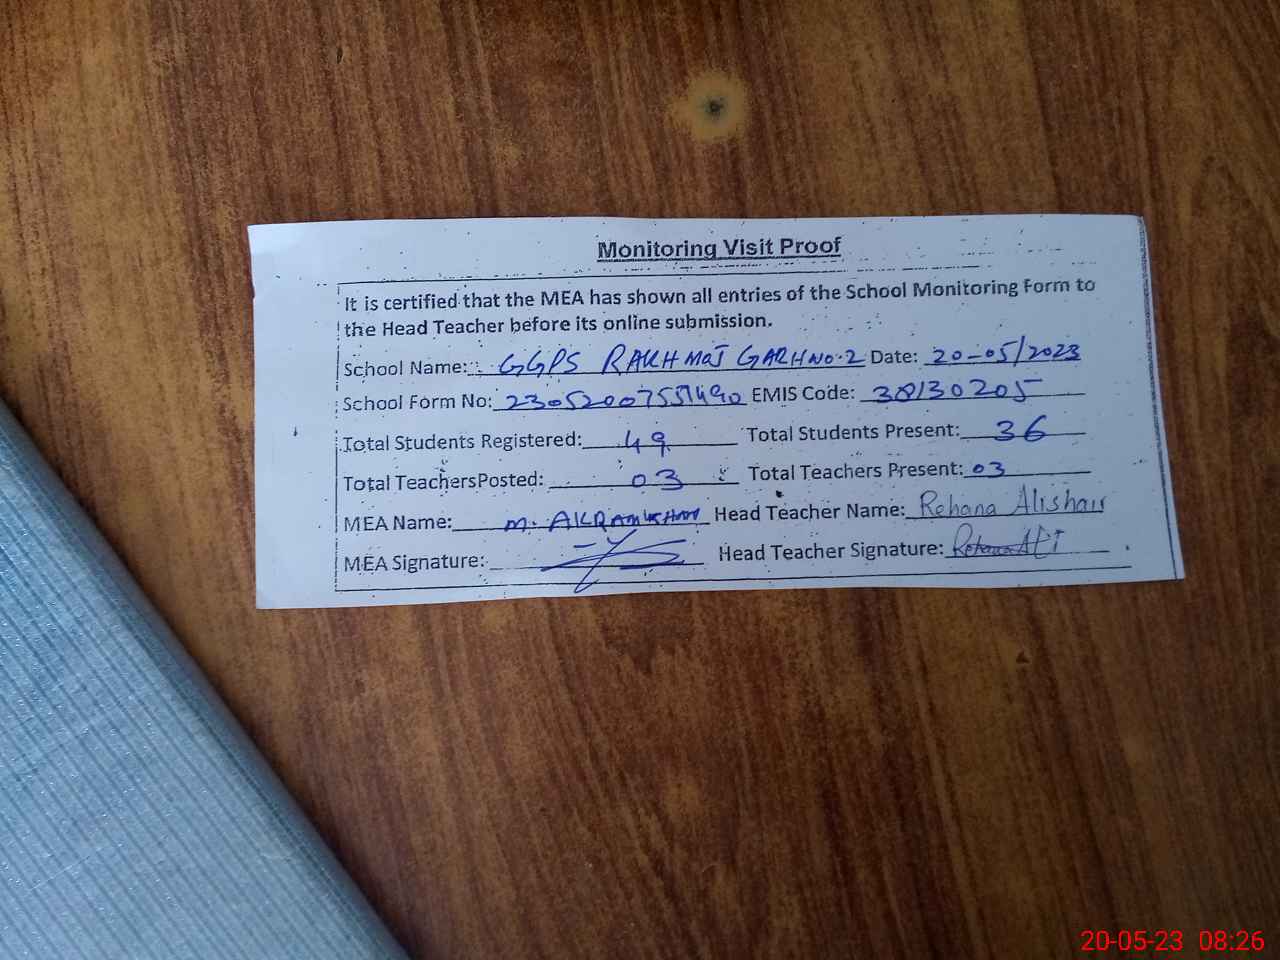 Monitoring Visit Proof
It is certified that the MEA has shown all entries of the School Monitoring Form to
the Head Teacher before its online submission.
School Name: GGPS RAKH Mat GARH No. 2 Date: 20-05/2023
School Form No: EMIS Code: 38130205
Total Students Registered: 49 Total Students Present: 36
Total TeachersPosted: 03 Total Teachers Present: 03
MEA Name: M. AKRAM KHAN Head Teacher Name: Rehana Alishair
MEA Signature: Head Teacher Signature: Rehana Ali
20-05-23 08:26